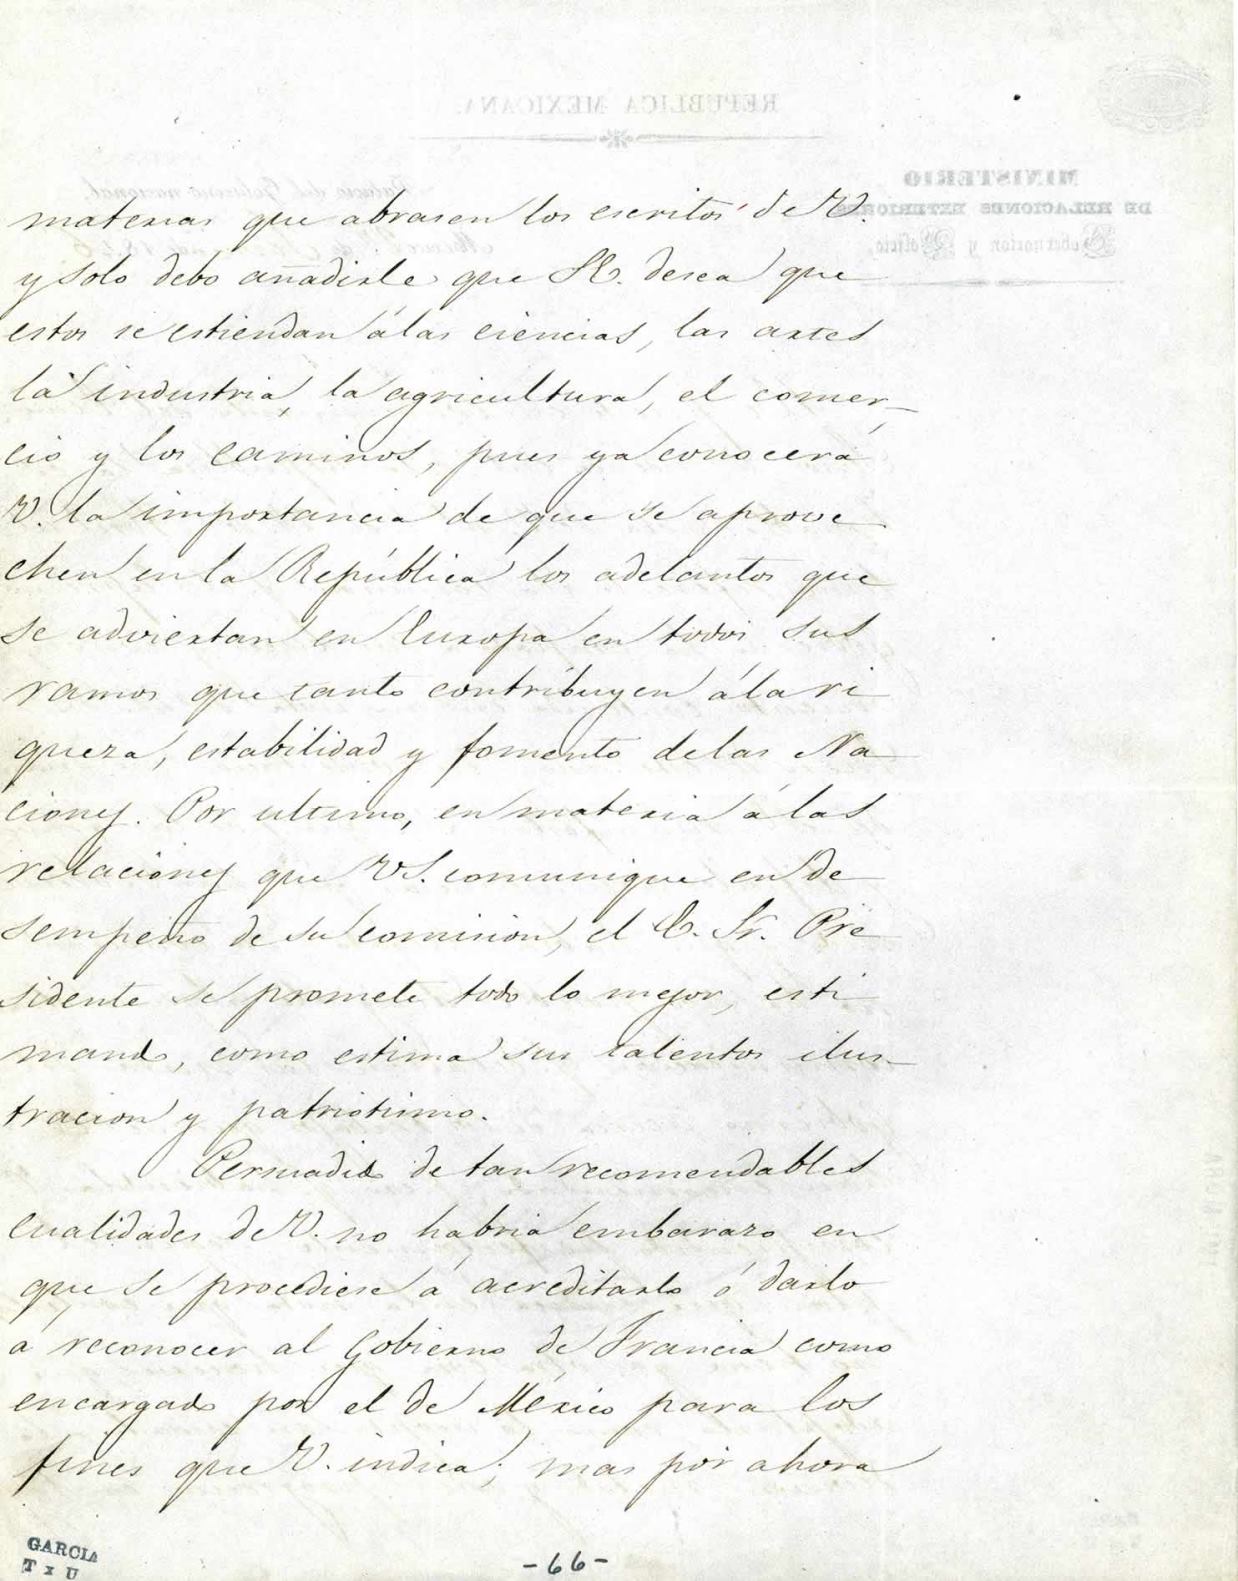 materias que abrasen los escritos de V.
y solo debo añadirle que S.E. desea que
estos se estiendan á las ciencias, las artes
la industria, la agricultura, el comer-
cio y los caminos, pues ya conocerá
V. la importancia de que se aprove
chen en la República los adelantos que
se adviertan en Europa en todos sus
ramos que tanto contribuyen á la ri
queza, estabilidad y fomento de las Na
ciones. Por ultimo, en materia á las
relaciones que VS. comunique en de
sempeño de su comision, el E. Sr. Pre
sidente se promete todo lo mejor, esti
mando, como estima sus talentos ilus-
tracion y patriotismo.
Persuadido de tan recomendables
cualidades de V. no habria embarazo en
que se procediese á acreditarlo ó darlo
á reconocer al Gobierno de Francia como
encargado por el de México para los
fines que V. indica; mas por ahora
GARCIA
T x U
-66-
REPUBLICA MEXICANA.
MINISTERIO
DE RELACIONES EXTERIORES
Gobernacion y Policia.
Palacio del Gobierno nacional.